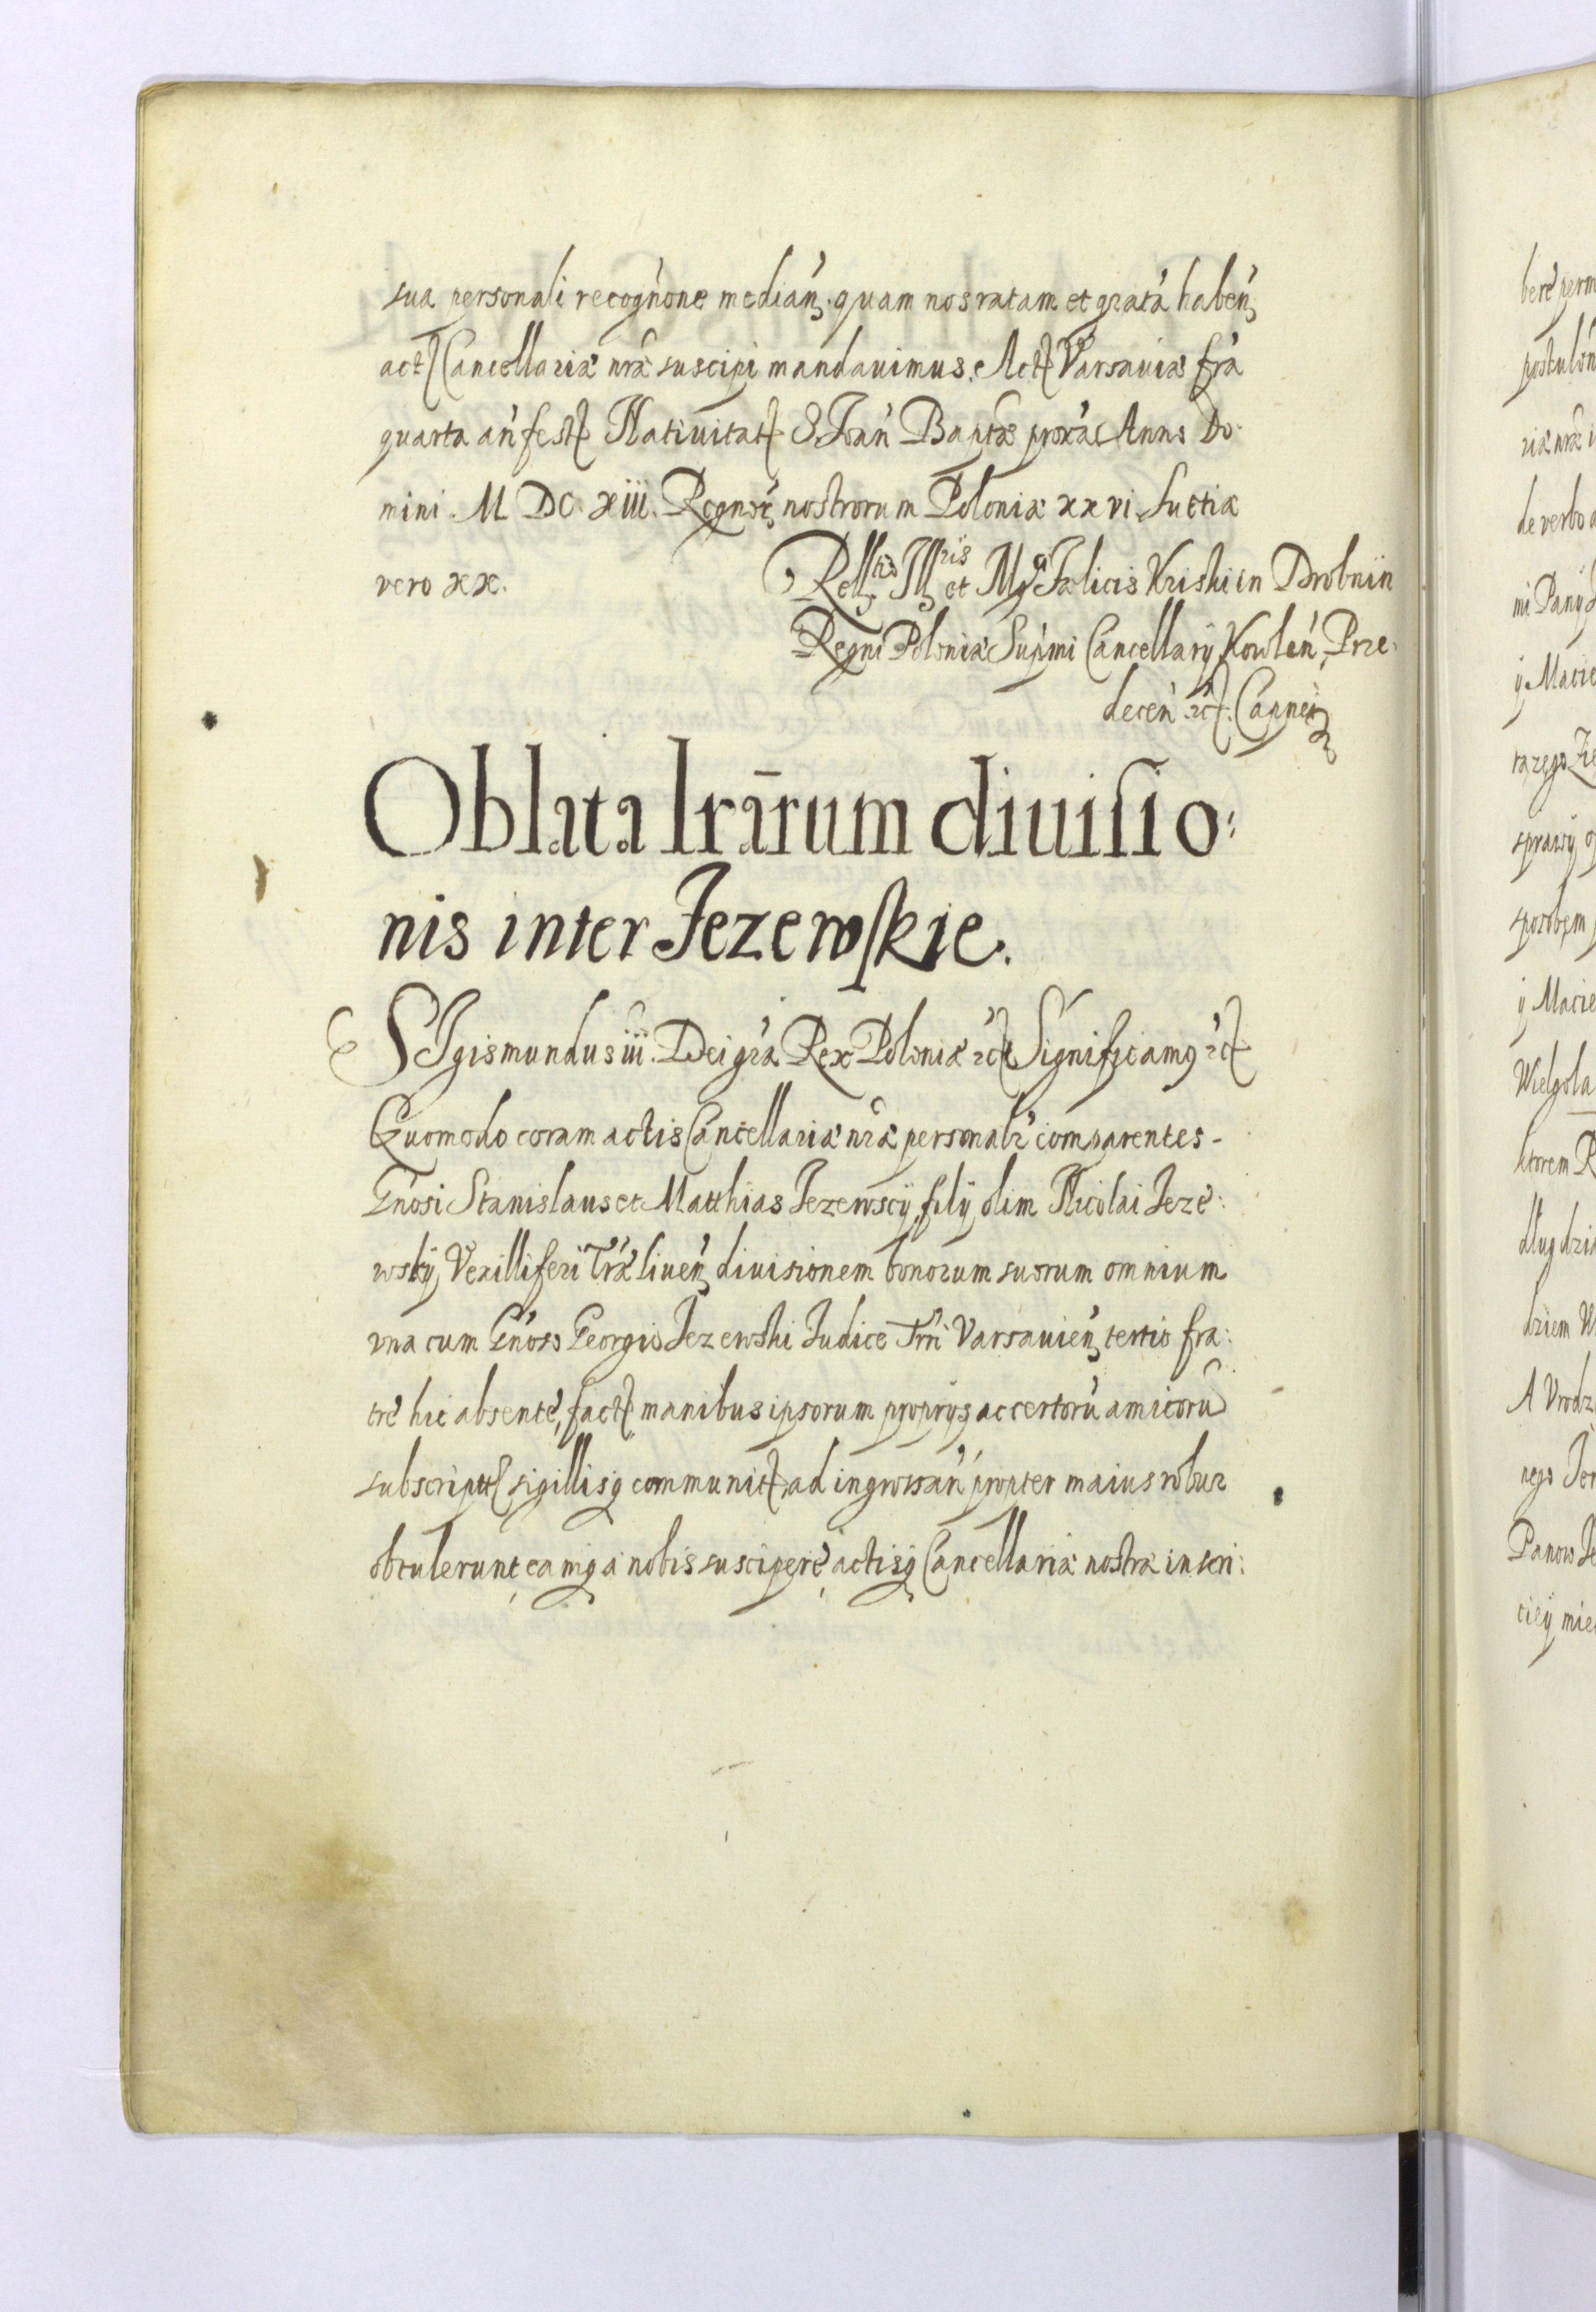 sua personali recogn̄one median̄. quam nos ratam et gratā haben̄
act Cancellariæ nr̄æ suscipi mandauimus. Act Varsauiæ fr̄a
quarta an̄ fest Natiuitat S. Joan̄ Baptæ prox̄a Anno Do-
mini. M DC. xiii. Regnor̄ nostrorum Poloniæ xxvi. Suetiæ
vero xx.
Rell̄. Ill̄ris et Mgci Fælicis Kriski in Drobnin
Regni Poloniæ Sup̄mi Cancellarÿ, Kowlen̄, Prze-
decen̄ etc. Capnei
Oblata lrārum diuisio:
nis inter Jezewskie.
SIgismundus iii. Dei gr̄a Rex Poloniæ etc Significamus etc
Quomodo coram actis Cancellariæ nr̄æ personalr̄ comparentes-
Gn̄osi Stanislaus et Matthias Jezewscÿ, filÿ olim Nicolai Jeze:
wskÿ, Vexilliferi Tr̄æ Liuen̄, diuisionem bonorum suorum omnium
vna cum Gn̄oso Georgio Jezewski Judice Trr̄i Varsauien̄, tertio fra:
tre hic absente, fact manibus ipsorum proprÿs ac certorū amicorū
subscriptt sigillisq communit ad ingrossan̄ propter maius robur
obtulerunt, eamq a nobis suscipere, actisq Cancellariæ nostræ inscri:
berè perm
postulōn
riæ nr̄æ i
de verbo a
mi Panÿ J
ÿ Macie
sprawÿ o
sposobem
ÿ Macie
Wielgola
dług
A Vrodz
nego Jer
Panow Je
ciÿ mie